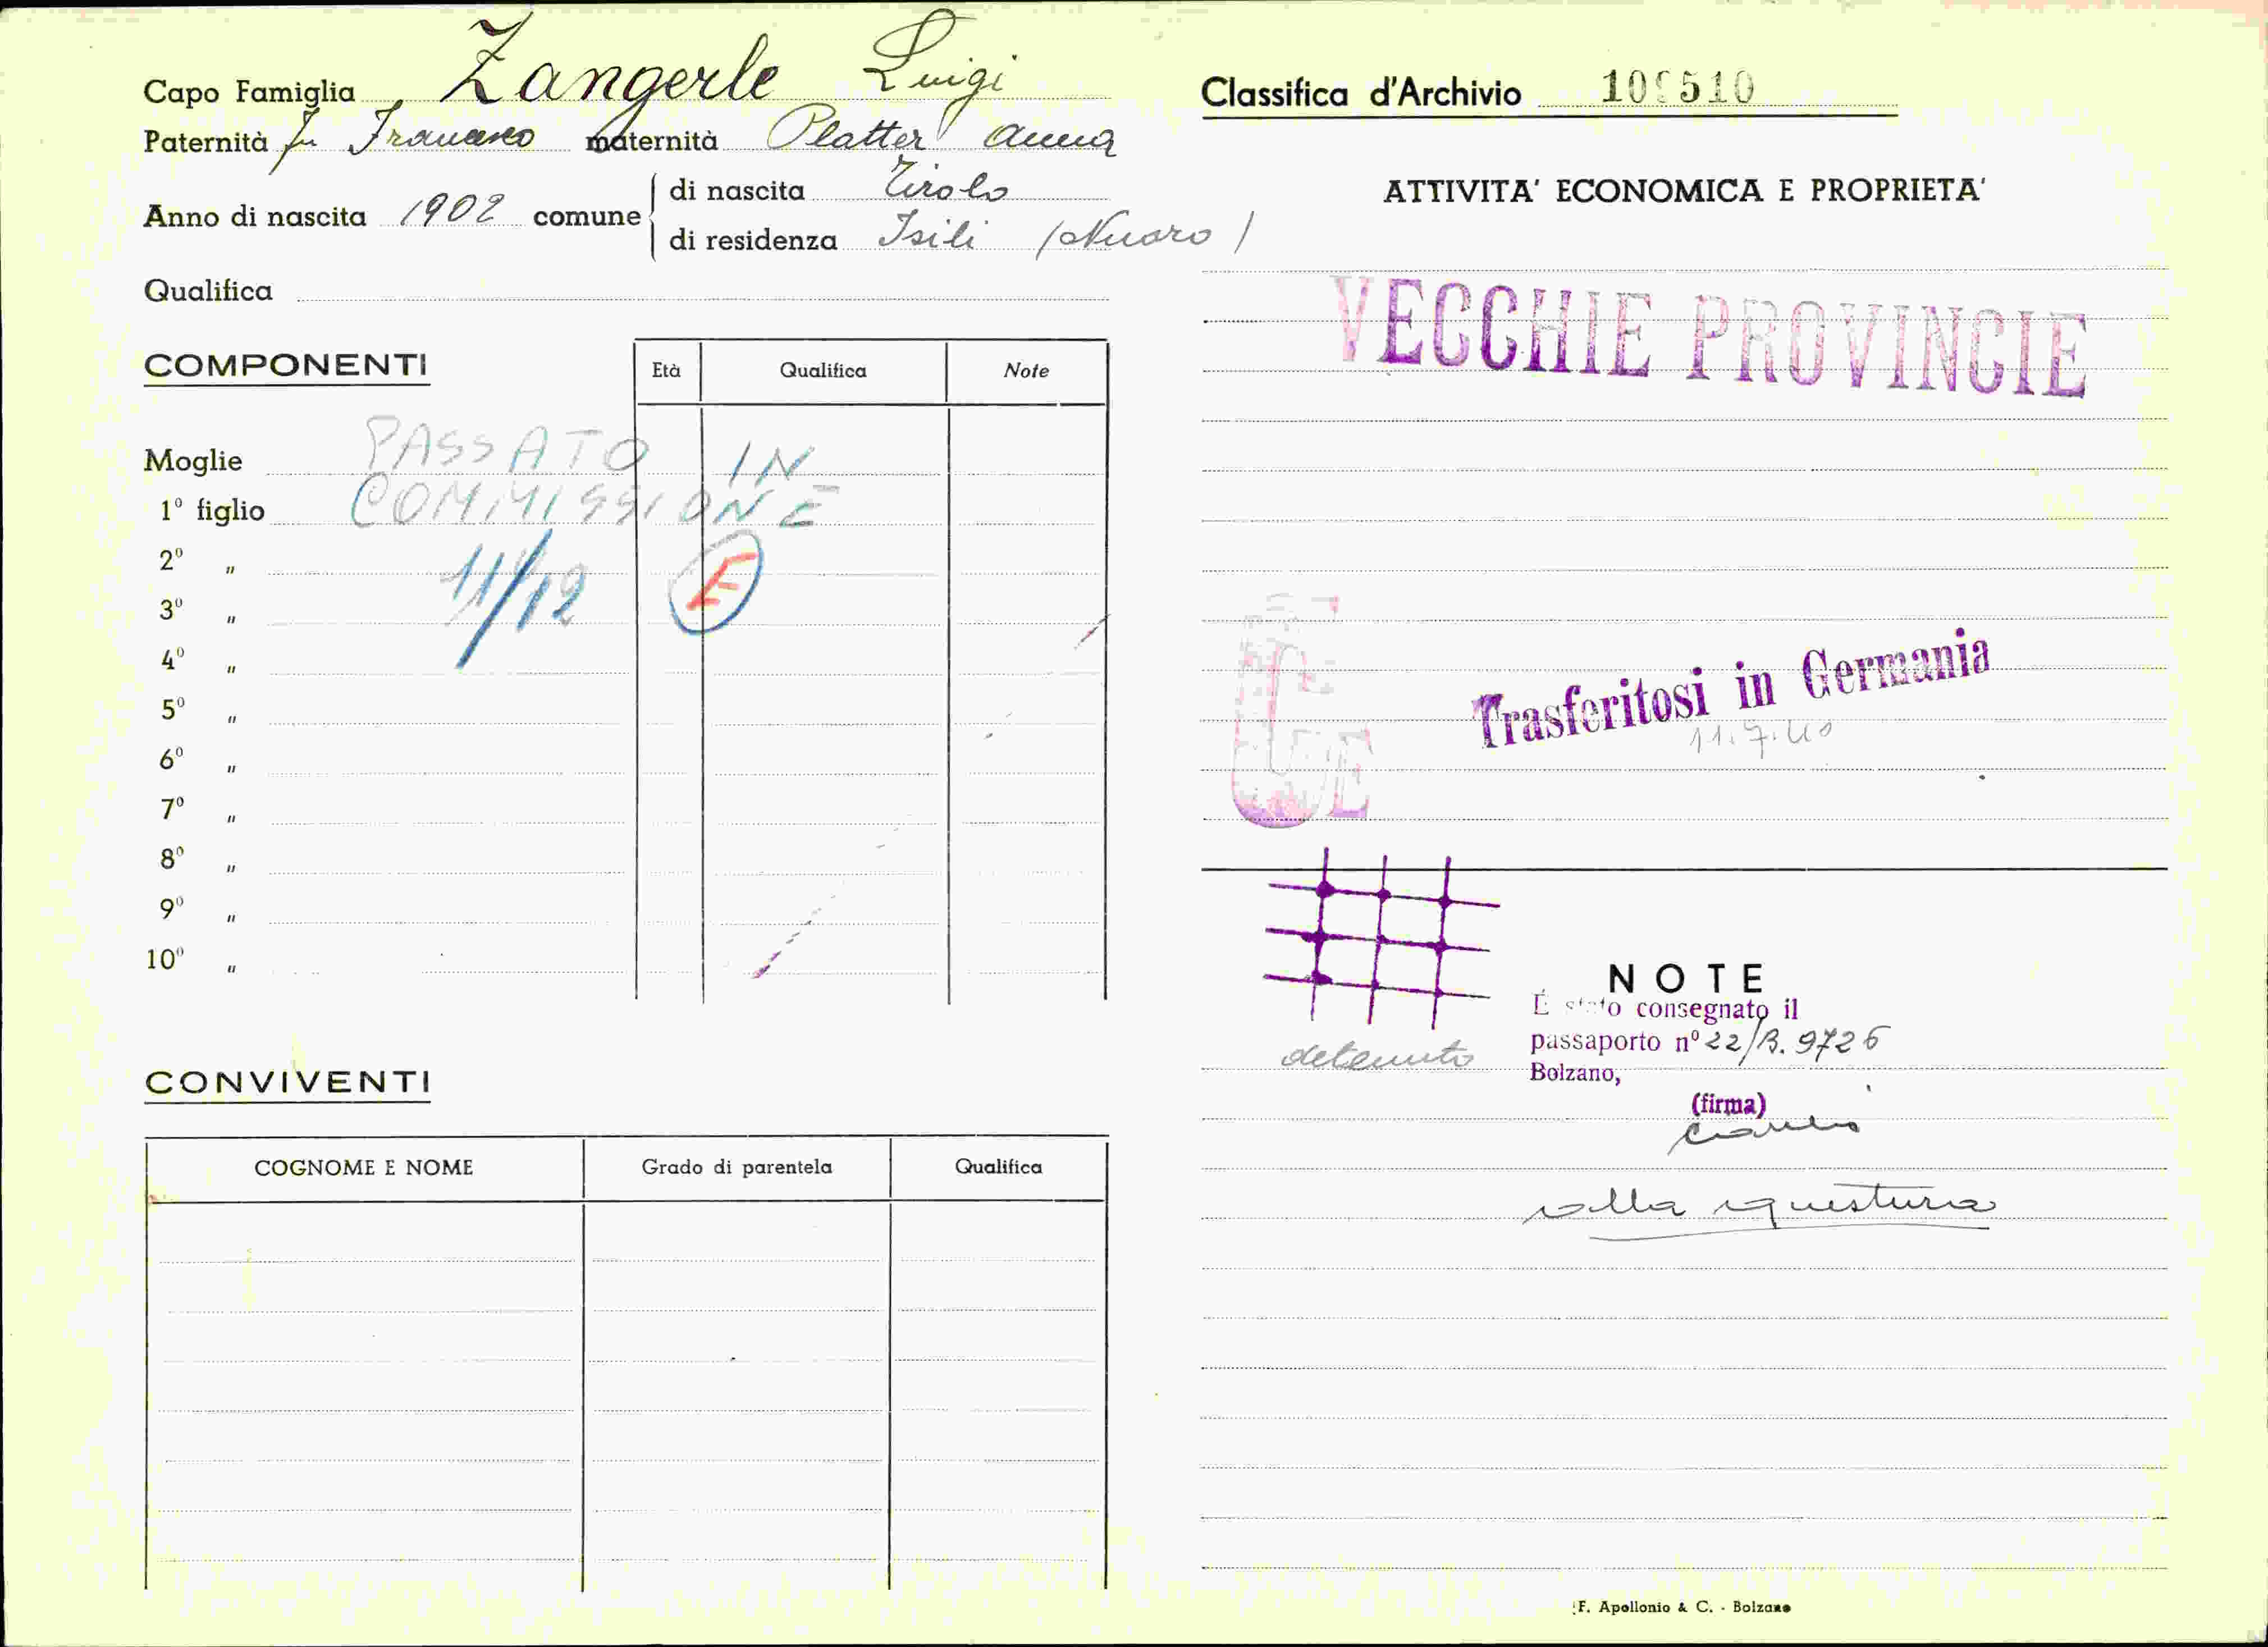 Capo Famiglia Zangerle Luigi
Paternità fu Francesco maternità Platter Anna
Anno di nascita 1902 comune
di nascita Tirolo
di residenza Isili (Nuoro)
Qualifica
COMPONENTI
Età Qualifica Note
Moglie PASSATO IN
1º figlio COMMISSIONE
2º " 11/12 E
3º "
4º "
5º "
6º "
7º "
8º "
9º "
10º "
CONVIVENTI
COGNOME E NOME Grado di parentela Qualifica
Classifica d'Archivio
ATTIVITA' ECONOMICA E PROPRIETA'
VECCHIE PROVINCIE
Trasferitosi in Germania
11.7.40
NOTE
È stato consegnato il
passaporto nº 22/B. 9726
detenuto
Bolzano,
(firma)
alla questura
F. Apollonio & C. - Bolzano